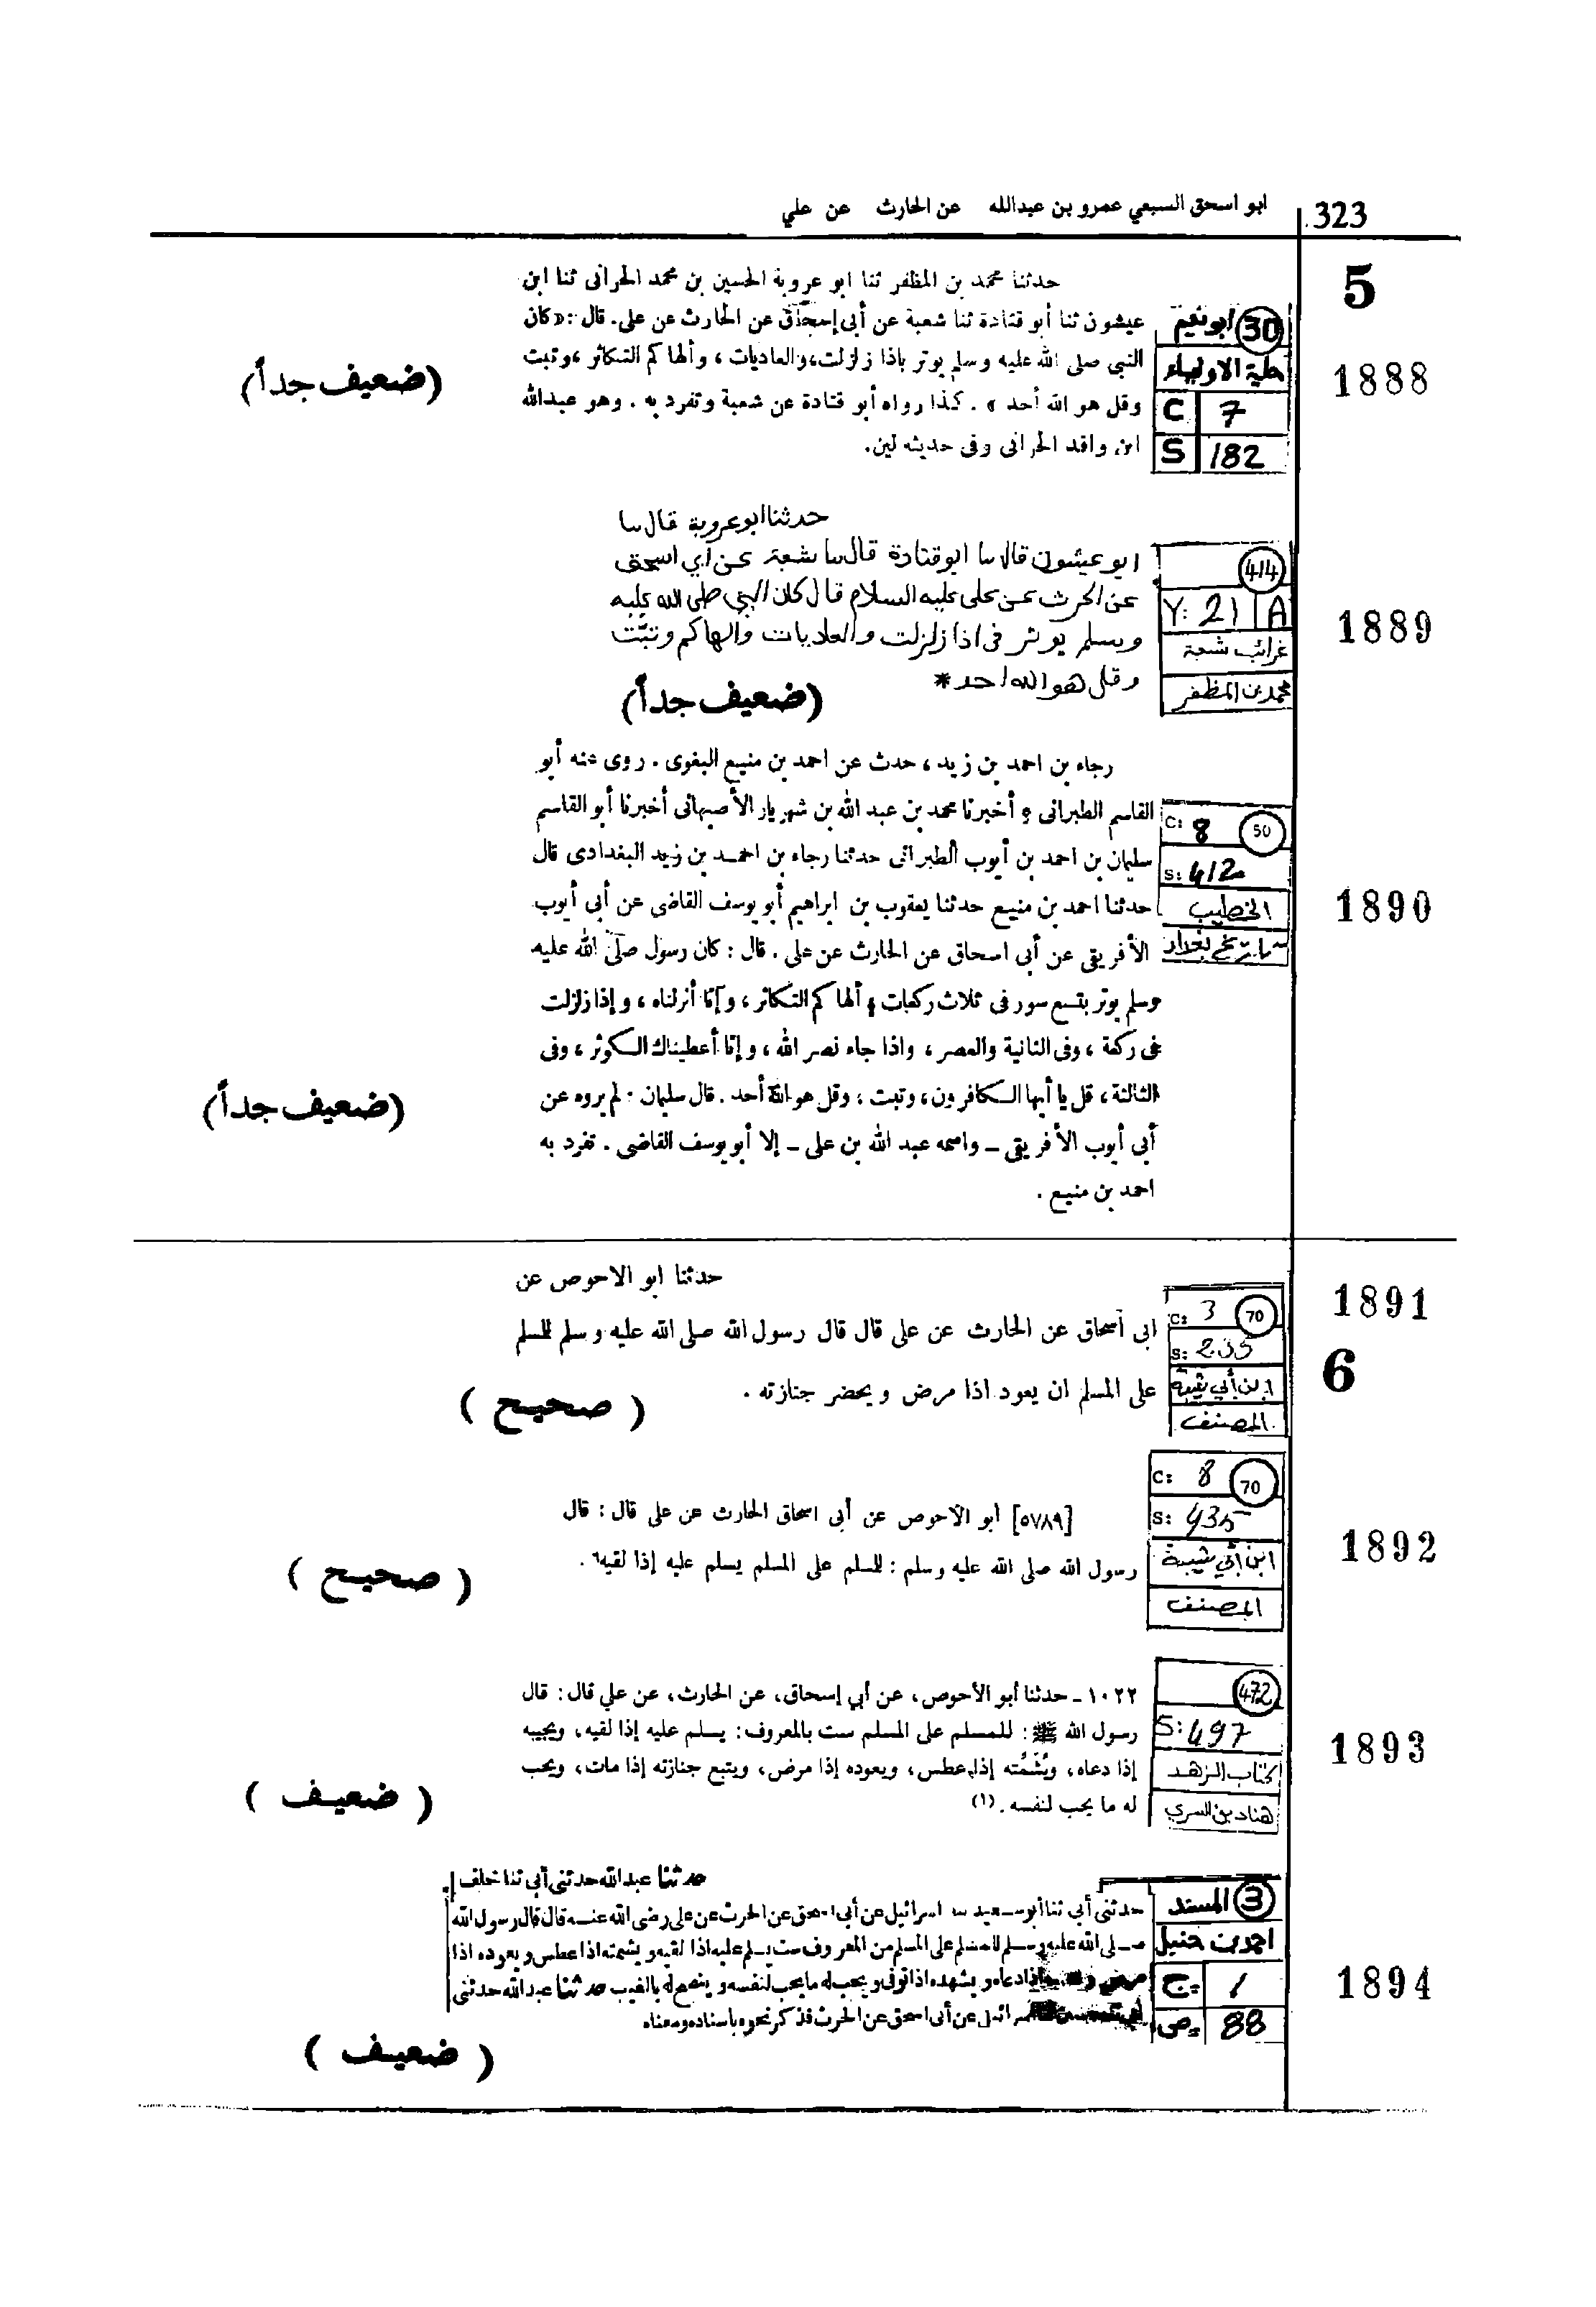 323 ابو اسحق السبعي عمرو بن عبدالله عن الحارث عن علي
5
حدثنا محمد بن المظفر ثنا ابو عروبة الحسين بن محمد الحرانى ثنا ابن
عيشون ثنا أبو قتادة ثنا شعبة عن أبى إسحاق عن الحارث عن على. قال: «كان
النبي صلى الله عليه وسلم يوتر باذا زلزلت، والعاديات، وألهاكم التكاثر، وتبت
وقل هو الله أحد». كذا رواه أبو قتادة عن شعبة وتفرد به. وهو عبدالله
ابن واقد الحرانى وفى حديثه لين.
30 أبو نعيم
حلية الاولياء
C 7
S 182
1888
(ضعيف جداً)
حدثنا ابو عروبة قال سا
ابو عيشون قال سا ابو قتادة قال سا شعبة عن أبي اسحق
عن الحرث عن على عليه السلام قال كان النبي صلى الله عليه
وسلم يوتر فى اذا زلزلت والعاديات والهاكم وتبّت
وقل هو الله احد *
414
Y: 21 A
غرائب شعبة
محمد بن المظفر
1889
(ضعيف جداً)
رجاء بن احمد بن زيد، حدث عن احمد بن منيع البغوى. روى عنه أبو
القاسم الطبرانى. أخبرنا محمد بن عبد الله بن شهريار الأصبهانى أخبرنا أبو القاسم
سليمان بن احمد بن أيوب الطبرانى حدثنا رجاء بن احمد بن زيد البغدادى قال
حدثنا احمد بن منيع حدثنا يعقوب بن ابراهيم أبو يوسف القاضى عن أبى أيوب
الأفريقى عن أبى اسحاق عن الحارث عن على. قال: كان رسول صلى الله عليه
وسلم يوتر بتسع سور فى ثلاث ركعات، ألهاكم التكاثر، وإنا أنزلناه، وإذا زلزلت
فى ركعة، وفى الثانية والعصر، واذا جاء نصر الله، وإنا أعطيناك الكوثر، وفى
الثالثة، قل يا أيها الكافرون، وتبت، وقل هو الله أحد. قال سليمان: لم يروه عن
أبى أيوب الأفريقى - واسمه عبد الله بن على - إلا أبو يوسف القاضى. تفرد به
احمد بن منيع.
C: 8 50
S: 412
الخطيب
تاريخ بغداد
1890
(ضعيف جداً)
1891
حدثنا ابو الاحوص عن
ابى اسحاق عن الحارث عن على قال قال رسول الله صلى الله عليه وسلم للمسلم
على المسلم ان يعود اذا مرض ويحضر جنازته.
C: 3 70
S: 235
ابن أبي شيبة
المصنف
6
(صحيح)
[٥٧٨٩] أبو الأحوص عن أبى اسحاق الحارث عن على قال: قال
رسول الله صلى الله عليه وسلم: للمسلم على المسلم يسلم عليه إذا لقيه.
C: 8 70
S: 435
ابن أبي شيبة
المصنف
1892
(صحيح)
١٠٢٢ - حدثنا أبو الأحوص، عن أبي إسحاق، عن الحارث، عن علي قال: قال
رسول الله ﷺ: للمسلم على المسلم ست بالمعروف: يسلم عليه إذا لقيه، ويجيبه
إذا دعاه، ويُشَمِّته إذا عطس، ويعوده إذا مرض، ويتبع جنازته إذا مات، ويحب
له ما يحب لنفسه. (١)
472
S: 497
كتاب الزهد
هناد بن السري
1893
(ضعيف)
حدثنا عبدالله حدثنى أبى ثنا خلف
حدثنى أبي ثنا أبو سعيد ثنا اسرائيل عن أبى اسحق عن الحرث عن على رضى الله عنه قال قال رسول الله
صلى الله عليه وسلم للمسلم على المسلم من المعروف ست يسلم عليه اذا لقيه ويشمته اذا عطس ويعوده اذا
مرض اذا دعاه ويشهده اذا توفى ويحب له ما يحب لنفسه وينصح له بالغيب حدثنا عبدالله حدثنى
عن أبى اسحق عن الحرث فذكر نحوه باسناده ومعناه
3 المسند
احمد بن حنبل
ج 1
ص 88
1894
(ضعيف)